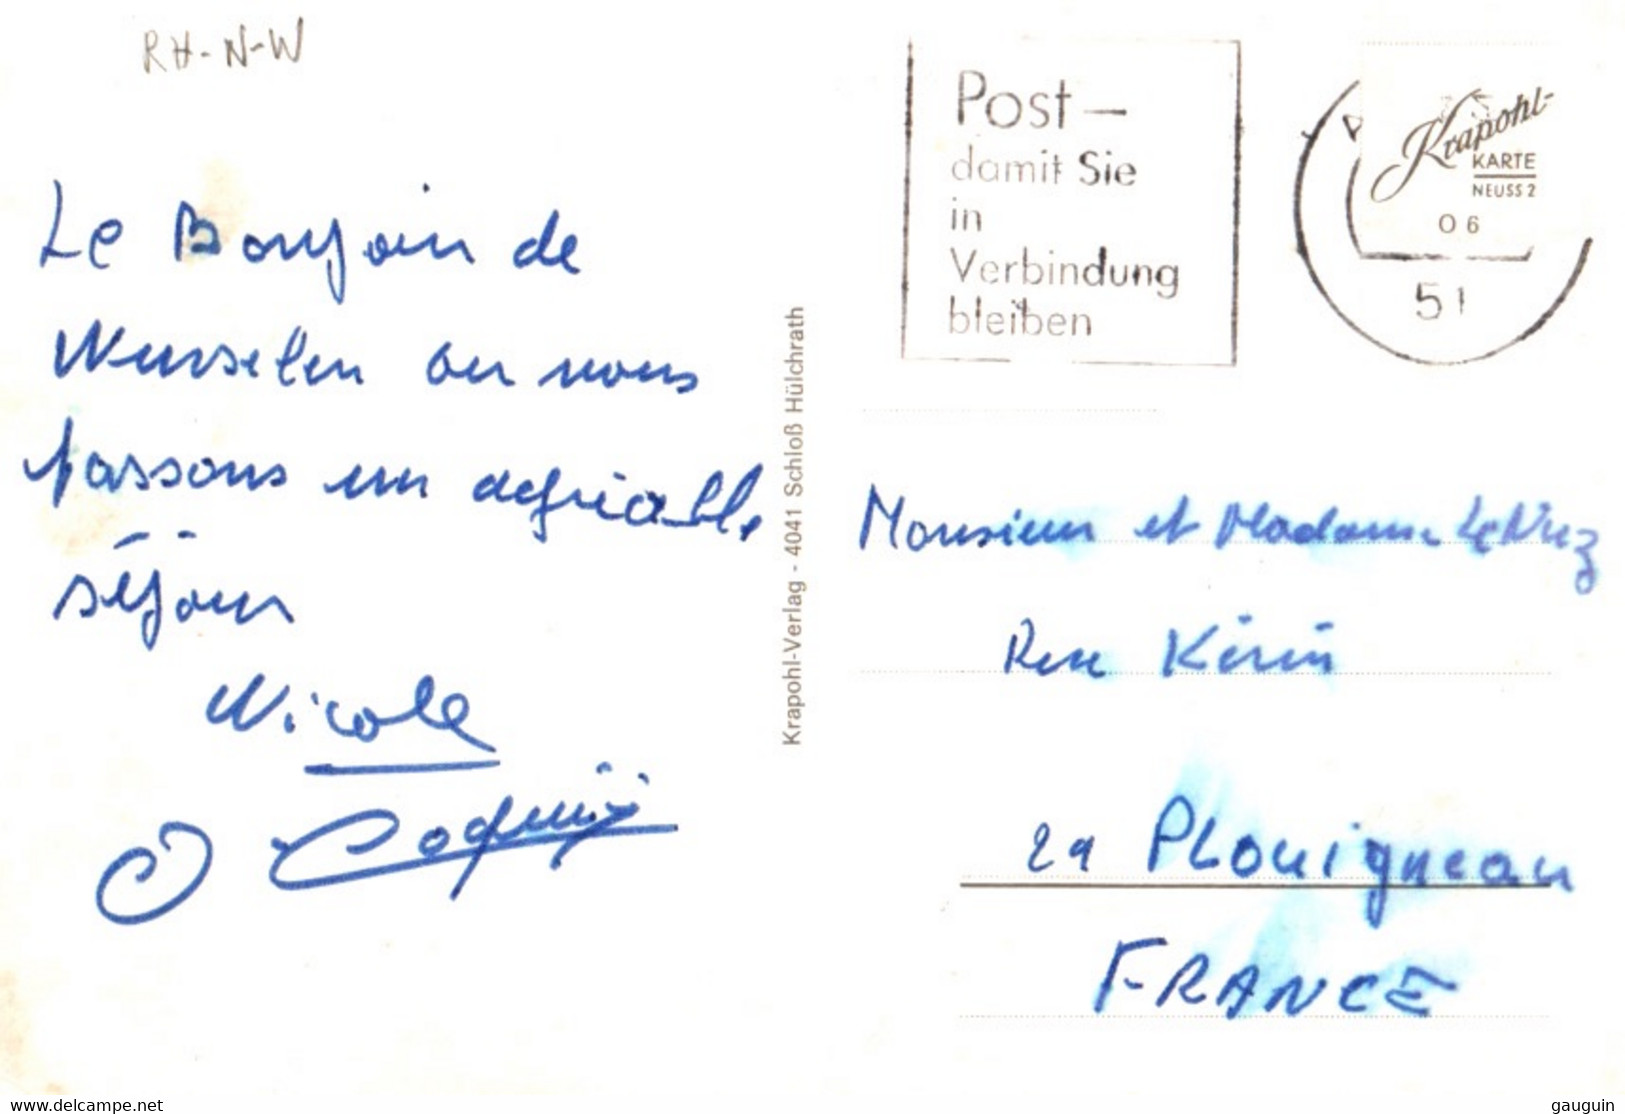 RH-N-W
Le Bonjoir de
Wurselen ou nous
passons un agréable
séjour
Nicole
Krapohl-Verlag - 4041 Schloß Hülchrath
Post —
damit Sie
in
Verbindung
bleiben
Krapohl-
KARTE
NEUSS 2
06
51
Monsieur et Madame
Rue
29 PLouigneau
FRANCE
www.delcampe.net
gauguin